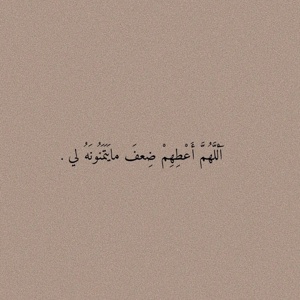 اللَّهُمَّ أَعْطِهِمْ ضِعفَ مايَتَمَنُونَهُ لي .